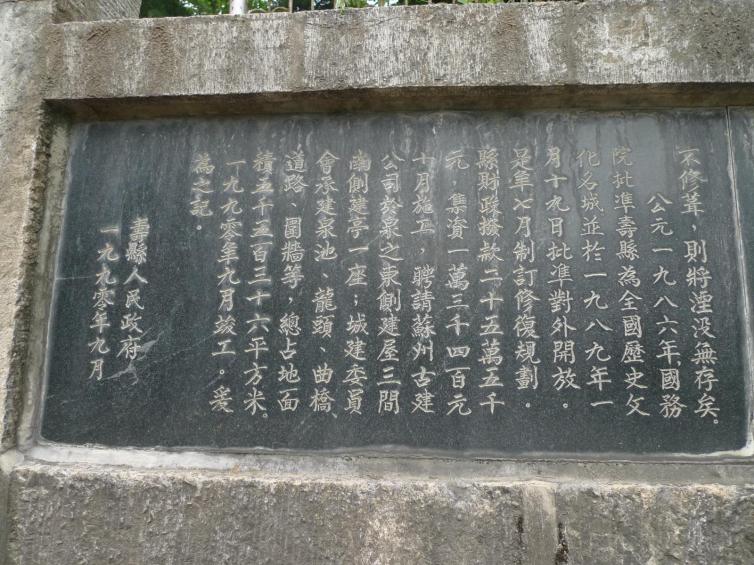 不修葺，則將湮没無存矣。
公元一九八六年國務
院批準壽縣為全國歷史文
化名城並於一九八九年一
月十九日批準對外開放。
是年七月制訂修復規劃。
縣財政撥款二十五萬五千
元，集資一萬三千四百元
十月施工，聘請蘇州古建
公司於泉之東創建屋三間
南側建亭一座；城建委員
會承建泉池、龍頭、曲橋、
道路、圍牆等，總占地面
積五千五百三十六平方米。
一九九零年九月竣工。爰
為之記。
壽縣人民政府
一九九零年九月